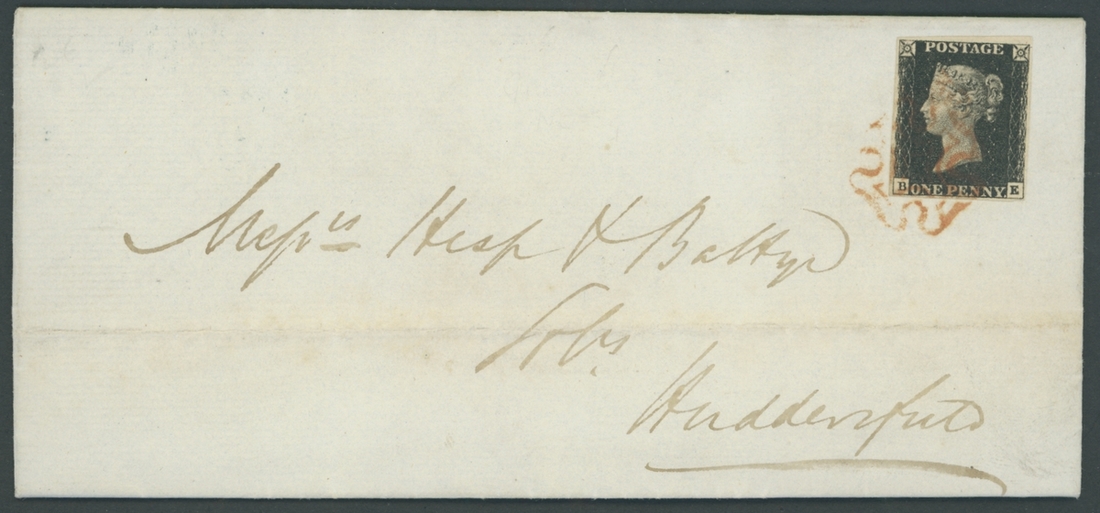 POSTAGE
B ONE PENNY. E
Messrs Hesp &
Solrs
Huddersfield